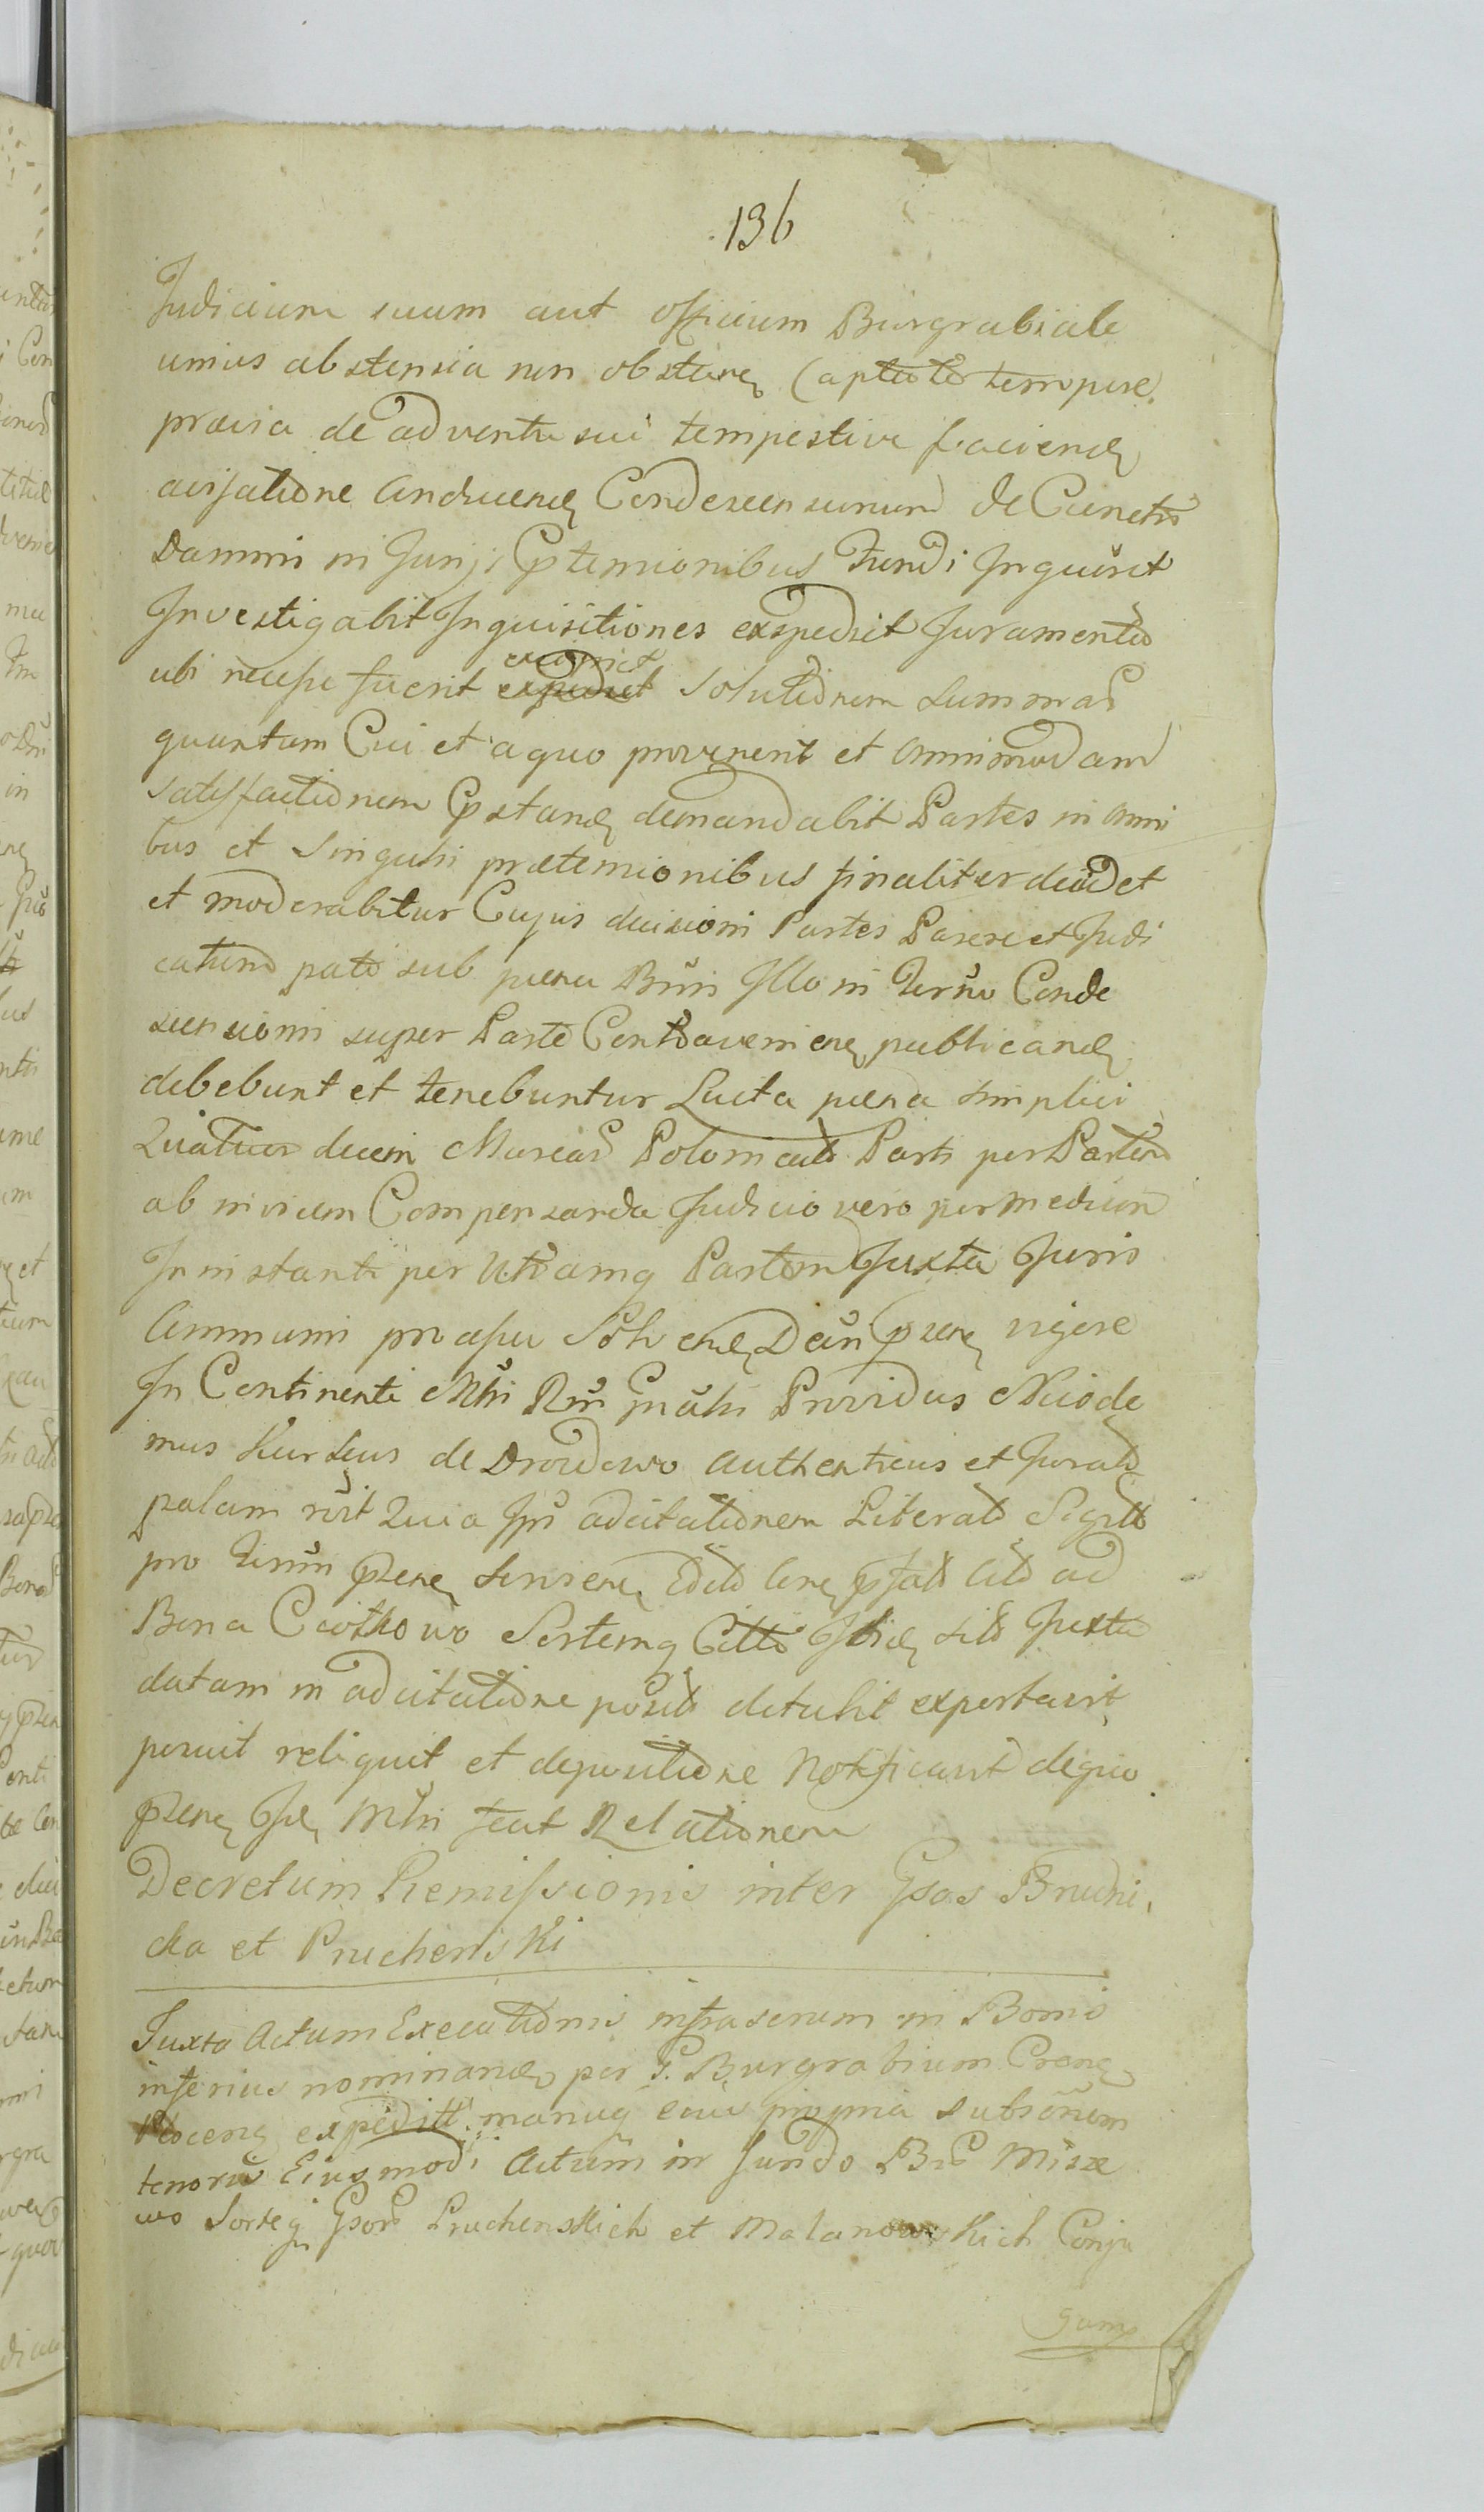 136
Judicium suum aut officium Burgrabiale
unius abstensia non obstanē captato tempore
prævia de adventu sui tempestive faciendē
avisatione Conducendē Condescensurum de Cunctis
Damnis injurijs Prtensionibus Fundi Inquiret
Investigabit Inquisitiones expediet Juramenta
ubi necesse fuerit excipiet Solutionem Summar
quantum Cui et a quo provenerit et omnimodam
satisfactionem Pstandē demandabit Partes in omni
bus et Singulis prætensionibus finaliter decidet
et moderabitur Cujus decisioni Partes Parere et Judi
catum pati sub pæna Bnis Illo in Termo Conde
scensionis super Parte Contravenienē publicandē
debebunt et tenebuntur Lucta pæna simplici
Quatuor decem Marcar Polonical Parti per Partem
ab invicem Compensanda Judicio vero per medium
In instanti per Utramq Partem Juxta Juris
Communis processu Solvendē Decin Psenē vigore
In Continenti Mstri Rni Gnalis Providus Nicode
mus Kurssus de Drozdowo authenticus et Jurats
palam rcvit Quia Ipse adcitationem Literals Sigills
pro Termin Psenē Servienē
Bona Ciotkowo Sortemq Citti Ibidē sits Juxta
datam in adcitatione posita detulit exportavit
posuit reliquit et depositione Notificavit de quo
Psenē Mstri fecit Relationem
Decretum Remissionis inter Gsos Brudni,
cka et Pruchenski
Juxta Actum Executionis infrascrum in Bonis
inferius nominandē per G. Burgrabium Crenē
Plocenē expeditt manuq eius propria subscrium
tenoris Eiusmodi Actum in fundo Bns Misze
wo Sorteq Gsor Pruchenskich et Malanowskich Conju
gum